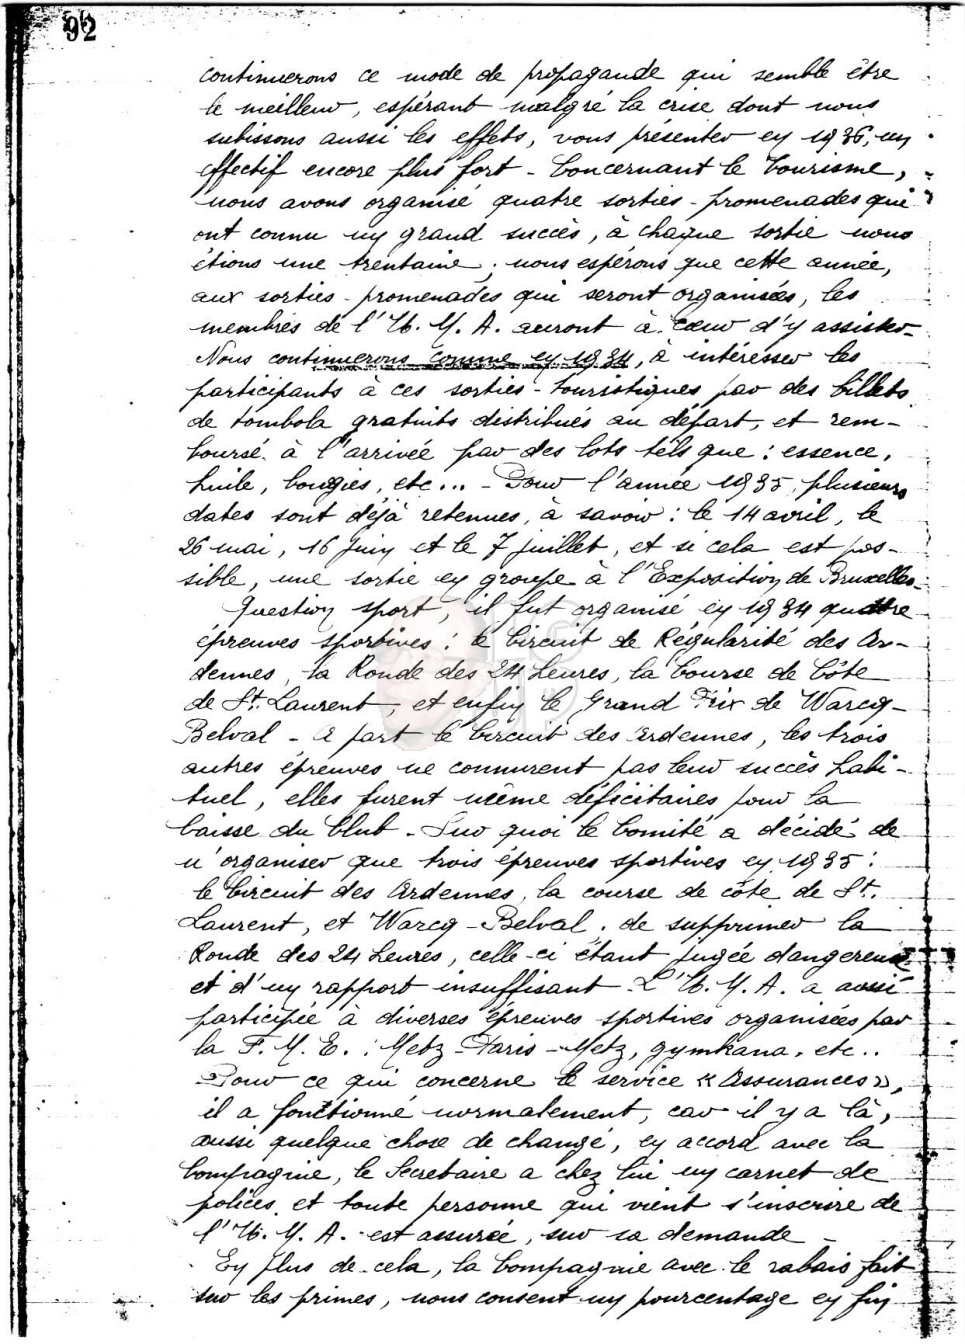 92
continuerons ce mode de propagande qui semble être
le meilleur, espérant malgré la crise dont nous
subissons aussi les effets, vous présenter en 1936, un
effectif encore plus fort - Concernant le Tourisme,
nous avons organisé quatre sorties-promenades qui
ont connu un grand succès, à chaque sortie nous
étions une trentaine ; nous espérons que cette année,
aux sorties-promenades qui seront organisées, les
membres de l'U. M. A. auront à cœur d'y assister -
Nous continuerons comme en 1934, à intéresser les
participants à ces sorties-touristiques par des billets
de tombola gratuits distribués au départ, et rem-
boursé à l'arrivée par des lots tels que : essence,
huile, bougies, etc... - Pour l'année 1935, plusieurs
dates sont déjà retenues, à savoir : le 14 avril, le
26 mai, 16 Juin et le 7 juillet, et si cela est pos-
sible, une sortie en groupe à l'Exposition de Bruxelles -
Question sport, il fut organisé en 1934 quatre
épreuves sportives : le Circuit de Régularité des Ar-
dennes, la Ronde des 24 heures, la Course de Côte
de St. Laurent, et enfin le Grand Prix de Warcq-
Belval - A part le Circuit des Ardennes, les trois
autres épreuves ne connurent pas leur succès habi-
tuel, elles furent même déficitaires pour la
caisse du Club - Sur quoi le Comité a décidé de
n'organiser que trois épreuves sportives en 1935 :
le Circuit des Ardennes, la course de côte de St.
Laurent, et Warcq-Belval, de supprimer la
Ronde des 24 heures, celle-ci étant jugée dangereuse
et d'un rapport insuffisant - L'U. M. A. a aussi
participée à diverses épreuves sportives organisées par
la F. M. E. : Metz-Paris-Metz, gymkana, etc..
Pour ce qui concerne le service « Assurances »,
il a fonctionné normalement, car il y a là,
aussi quelque chose de changé, en accord avec la
Compagnie, le Secretaire a chez lui un carnet de
polices, et toute personne qui vient s'inscrire de
l'U. M. A. est assurée, sur sa demande -
En plus de cela, la Compagnie avec le rabais fait
sur les primes, nous consent un pourcentage en fin